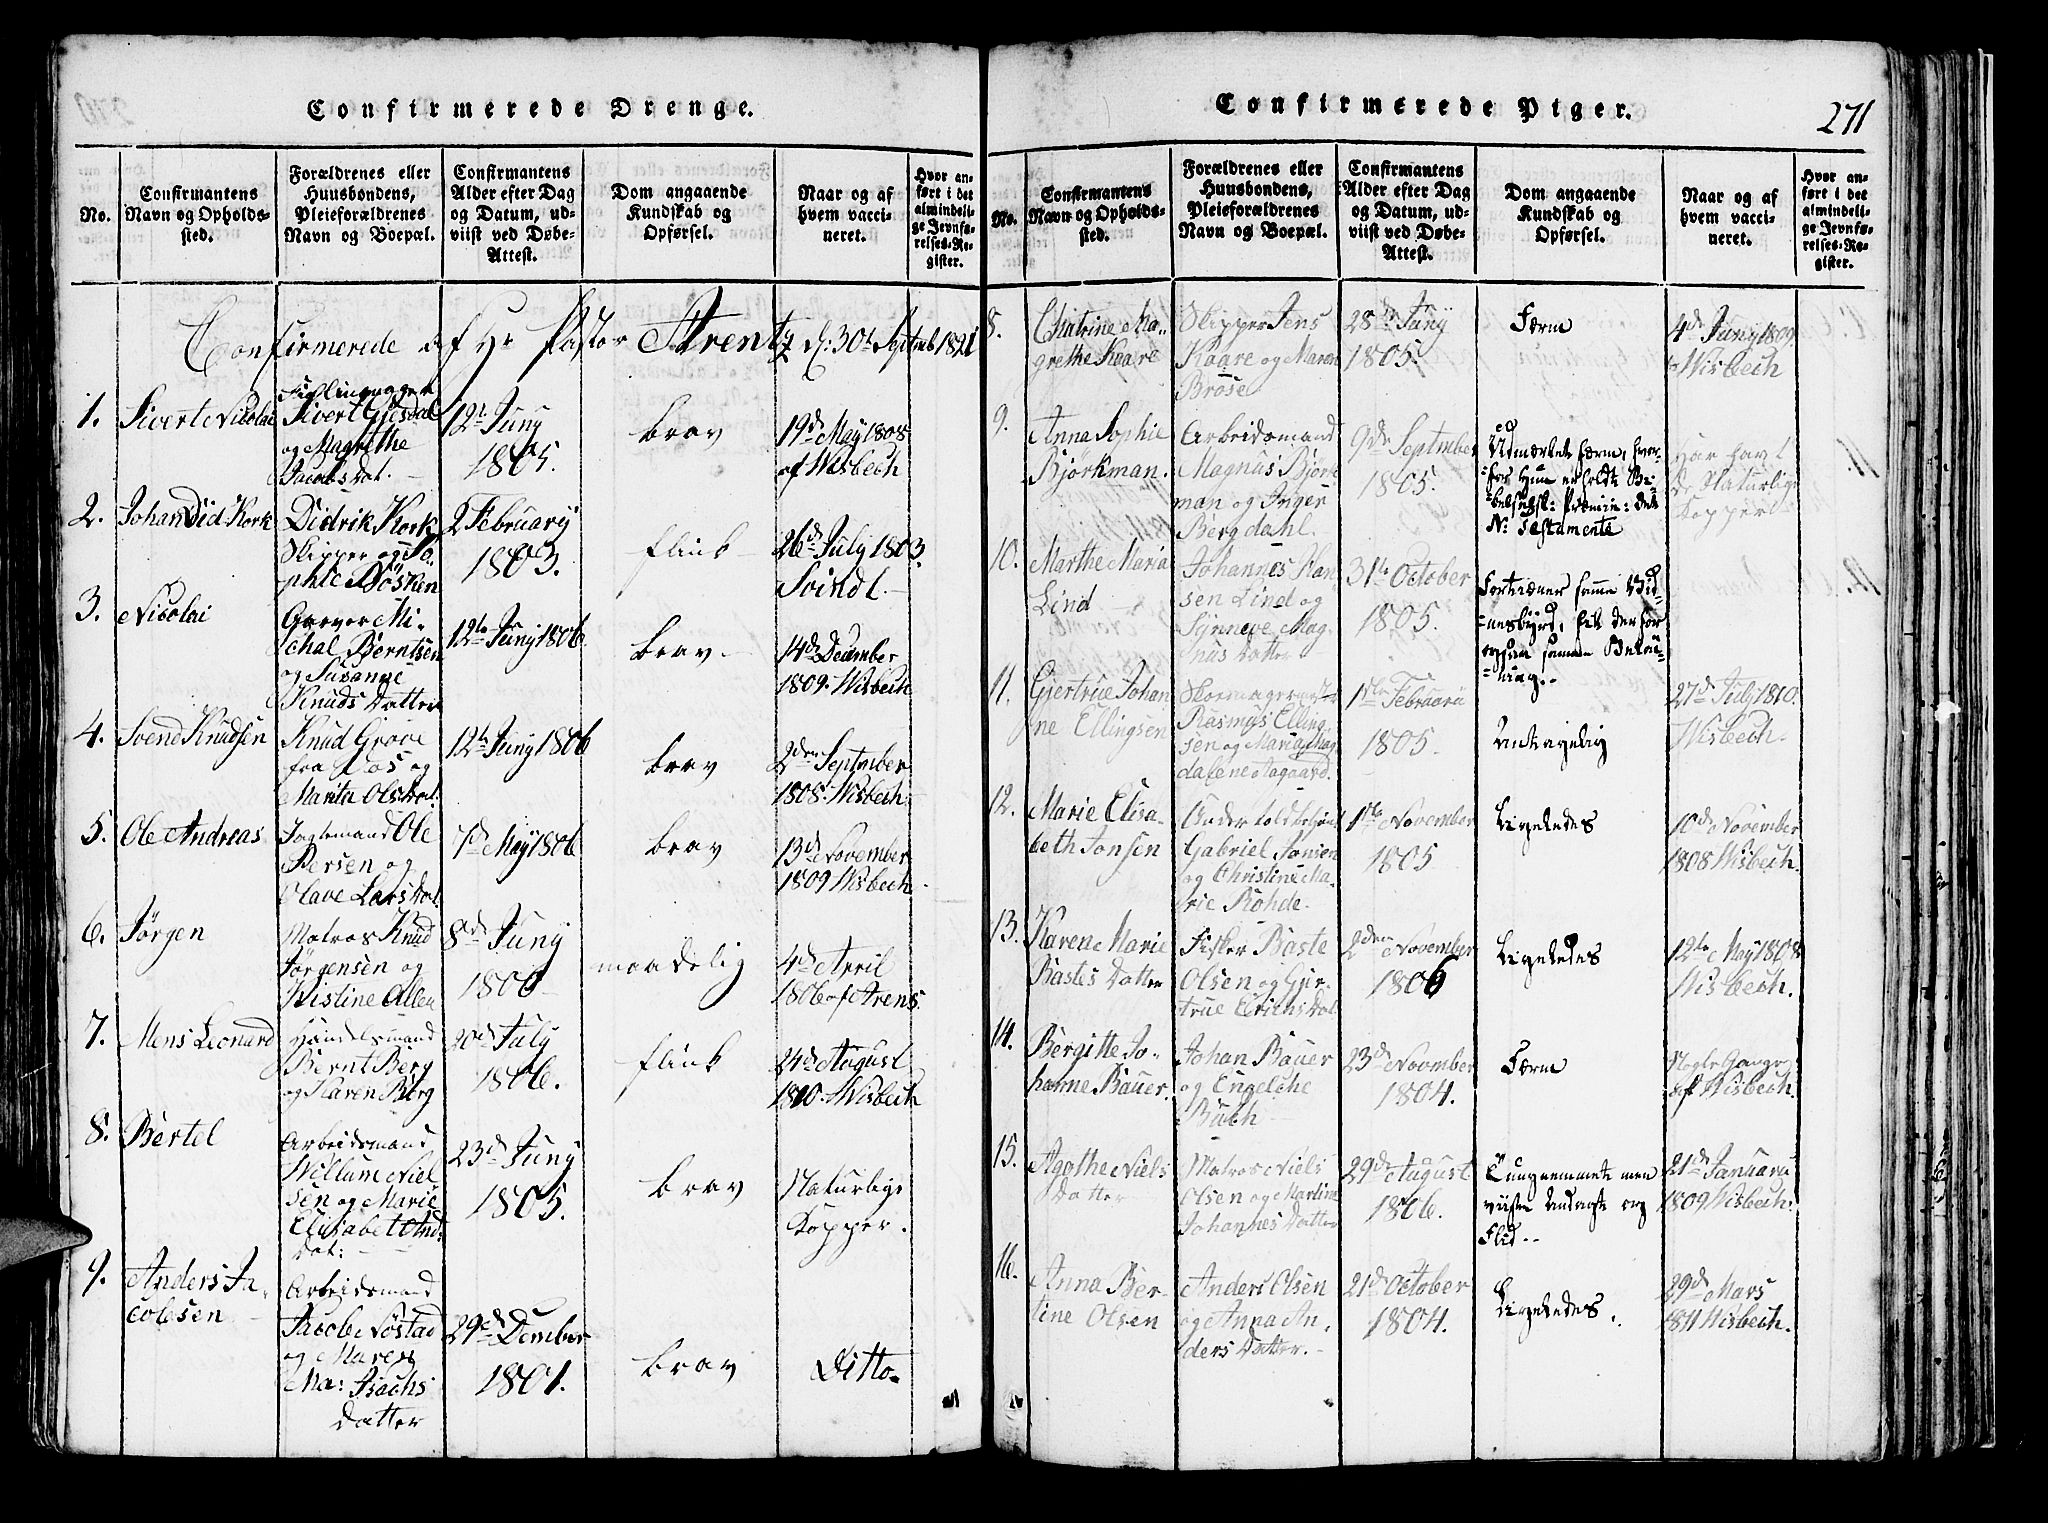 Confirmerede Drenge.
No.
Confirmantens
Navn og Opholds-
sted.
Forældrenes eller
Huusbondens,
Pleieforældrenes
Navn og Boepæl.
Confirmantens
Alder efter Dag
og Datum, ud-
viist ved Døbe-
Attest.
Dom angaaende
Kundskab og
Opførsel.
Naar og af
hvem vacci-
neret.
Hvor an-
ført i det
almindeli-
ge Jevnfø-
relses-Re-
gister.
Confirmerede af Hr Pastor Arentz d: 30t Septmb 1821
1.
Sivert Nicolai
Sivert Gjesdal
og Magrethe
Jacobs Dat.
12t Juny
1805.
brav
19d May 1808
af Wisbech
2.
Johan Did Kork
Didrik Kork
Skipper og So-
phie Döscken
2 February
1803.
flink
26d July 1803.
Svindl.
3.
Nicolai
Garver Mi-
chal Berntsen
og Susanne
Knuds Datter
12te Juny 1806.
brav.
14d December
1809. Wisbech
4.
Svend Knudsen
Knud Grove
fra Vos og
Marita Ols Dat.
12te Juny 1806
brav
2den September
1808. Wisbech.
5.
Ole Andreas
Ole
Persen og
Olave Lars Dat.
7d May 1806
brav
13d November
1809 Wisbech.
6.
Jørgen
Matros Knud
Jørgensen og
Kistine Allen
8d Juny
1806
maadelig
4d April
1806 af Arens.
7.
Mens Leonard
Handelsmand
Bernt Berg
og Karen Berg
20d July
1806.
flink
24d August
1810. Wisbech
8.
Bertel
Arbeidsmand
Willum Niel-
sen og Marie
Elisabet And:
Dat:
23d Juny
1805.
brav
Naturlige
Kopper.
9.
Anders Ja-
cobsen
Arbeidsmand
Jacob Nöstad
og Maren
Ma: Isachs
Datter
29d Dember
1801.
brav
Ditto.
Confirmerede Piger.
271
No.
Confirmantens
Navn og Opholds-
sted.
Forældrenes eller
Huusbondens,
Pleieforældrenes
Navn og Boepæl.
Confirmantens
Alder efter Dag
og Datum, ud-
viist ved Døbe-
Attest.
Dom angaaende
Kundskab og
Opførsel.
Naar og af
hvem vacci-
neret.
Hvor an-
ført i det
almindeli-
ge Jevnfø-
relses-Re-
gister.
8.
Chatrine Ma-
grethe Kaare
Skipper Jens
Kaare og Maren
Bröse
28d Juny
1805.
Færm
4d Juny 1809.
Wisbech
9.
Anna Sophie
Björkman.
Arbeidsmand
Magnus Björk-
man og Inger
Bergdahl.
9de Septmber
1805.
Udmærket færm, hvor-
for Hun er holdt Bi-
belselsk: Præmie: det
N: Testamente
Har havt
de Naturlige
Kopper
10.
Marthe Maria
Lind
Johannes Han
sen Lind og
Synneve Mag
nus Datter
31te October
1805.
Fortiener samme Vid-
nesbyrd, fik derfor
ogsaa samme Beløn-
ning.
11.
Gjertrue Johan
ne Ellingsen
Rasmus Elling
sen og Maria Mag
dalene Aagaard.
1ste Februarii
1805.
Antagelig
27d July 1810.
Wisbech.
12.
Marie Elisa-
beth Jonsen
Gabriel Jonsen
og Christine Ma-
rie Rohde.
1ste November
1805
Ligeledes
10d November
1808 Wisbech.
13.
Karen Marie
Bastes Datter
Fisker Baste
Olsen og Gjer-
true Erichs Dat
2den November
1806
Ligeledes
12te May 1808
Wisbech.
14.
Bergitte Jo-
hanne Bauer.
Johan Bauer
og Engelche
Buch
23d November
1804.
Færm
Nogle Gange
af Wisbech.
15.
Agathe Niels
Datter
Matros Niels
Olsen og Martine
Johannes Datter
29d August
1806.
Tungnemmet men
viiste Andagt og
Flid.
21d Januarii
1809 Wisbech.
16.
Anna Ber-
tine Olsen
Anders Olsen
og Anna An-
ders Datter.
21d October
1804.
Ligeledes.
29d Mars
1811 Wisbech.